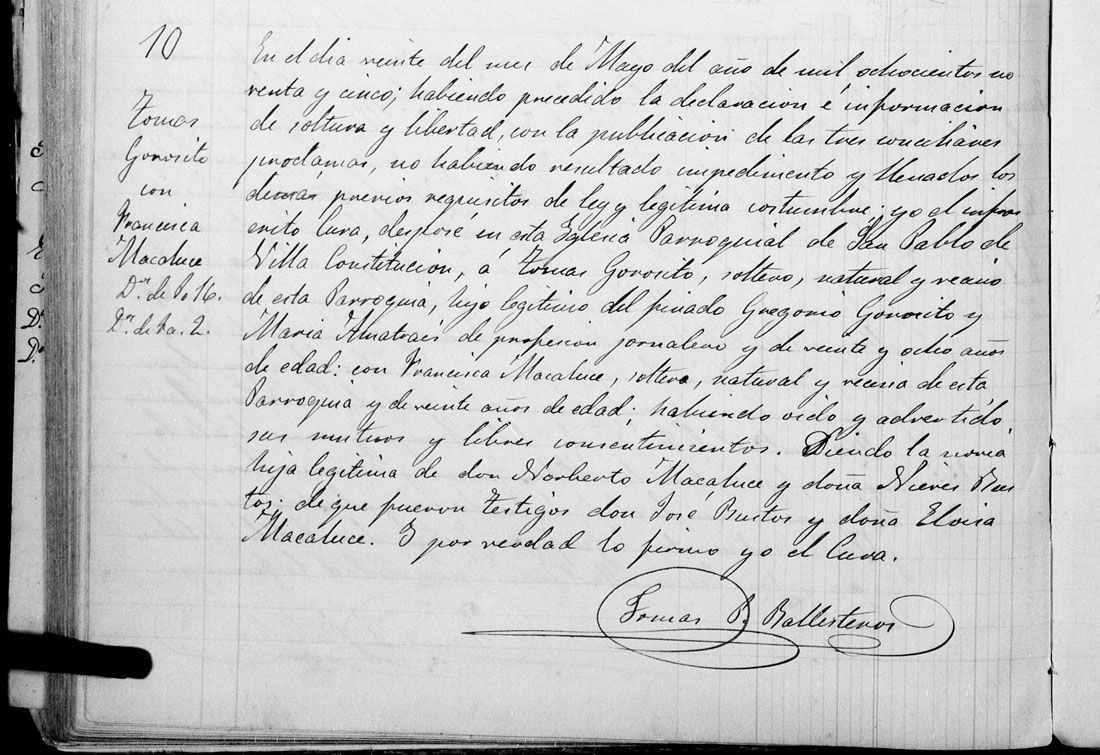 10
Tomas
Gorosito
con
Francisca
Macaluce
D.os de P. 16.
D.n de Fa. 2.
En el dia veinte del mes de Mayo del año de mil ochocientos no
venta y cinco; habiendo precedido la declaracion é informacion
de soltura y libertad, con la publicacion de las tres conciliares
proclamas, no habiendo resultado impedimento y llenados los
demas previos requisitos de ley y legitima costumbre; yo el infras
crito Cura, desposé en esta Eglesia Parroquial de San Pablo de
Villa Constitucion, á Tomas Gorosito, soltero, natural y vecino
de esta Parroquia, hijo legitimo del finado Gregorio Gorosito y
Maria de profesion jornalero y de veinte y ocho años
de edad: con Francisca Macaluce, soltera, natural y vecina de esta
Parroquia y de veinte años de edad: habiendo oido y advertido
sus mutuos y libres consentimientos. Siendo la novia
hija legitima de don Norberto Macaluce y doña Nieves Bus
tos; de que fueron testigos don José Bustos y doña Eloisa
Macaluce. I por verdad lo firmo yo el Cura.
Tomas P. Ballesteros